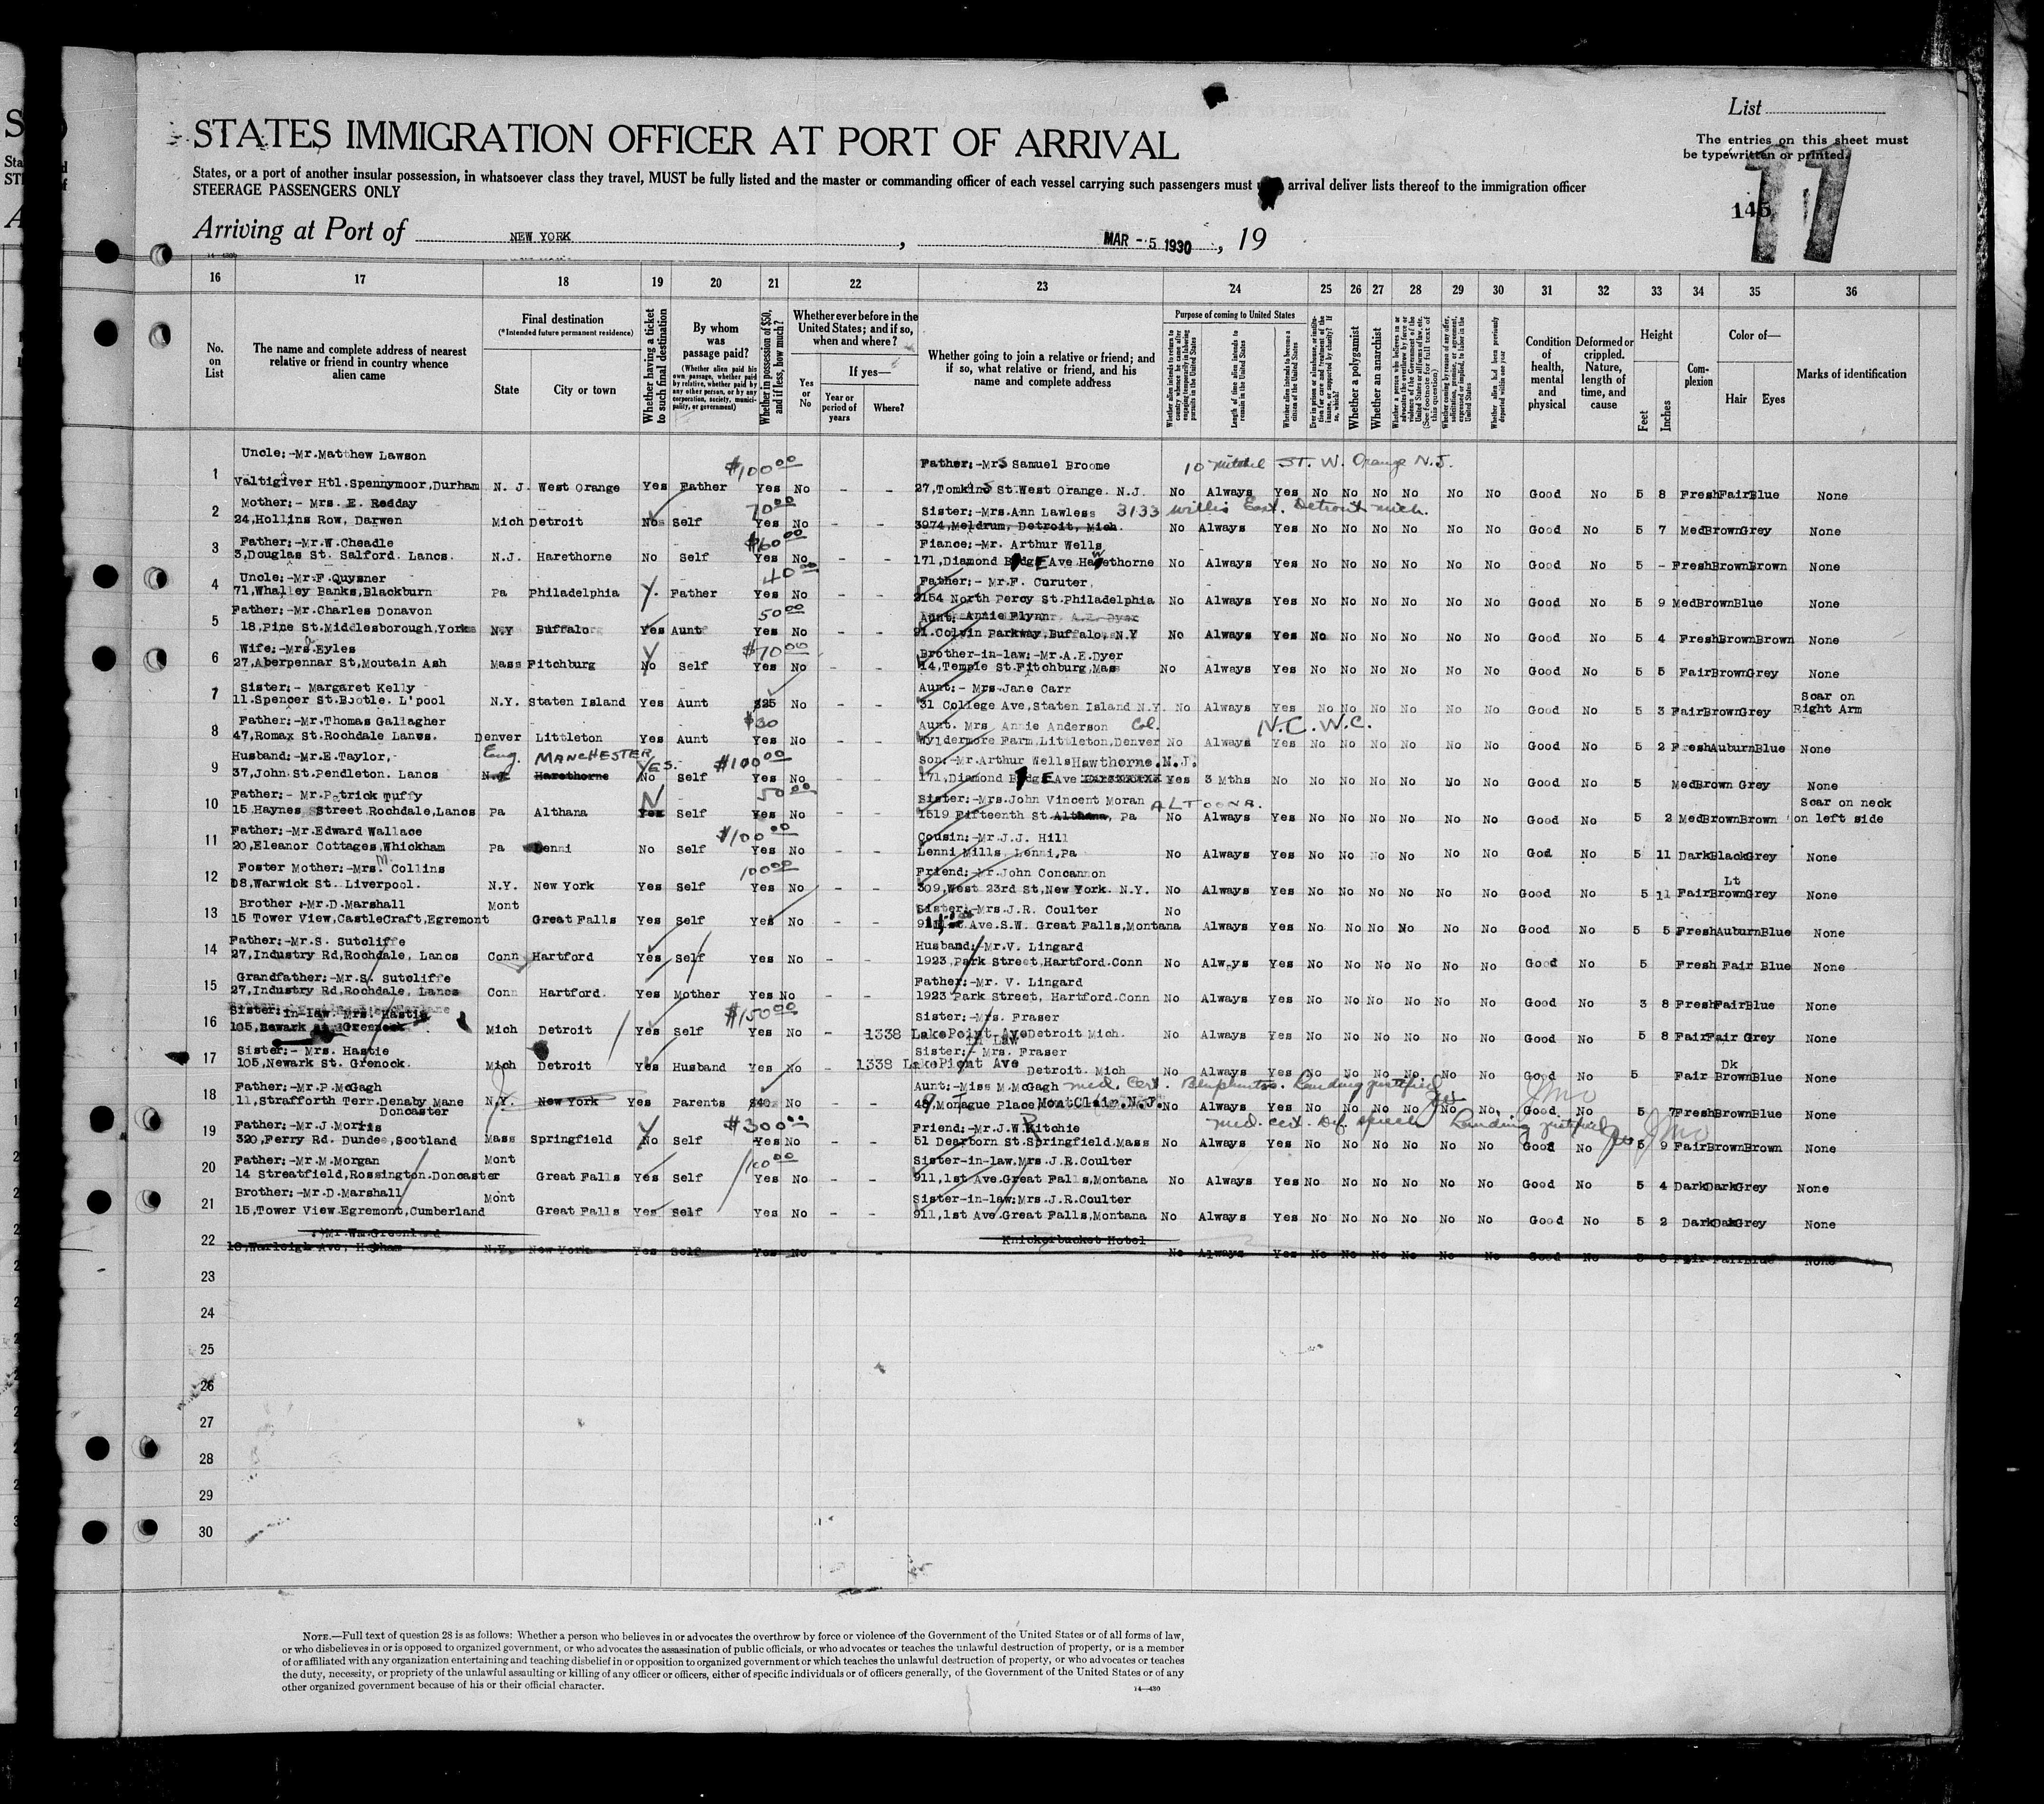 List
The entries on this sheet must
be typewritten or printed.
STATES IMMIGRATION OFFICER AT PORT OF ARRIVAL
11
145
States, or a port of another insular possession, in whatsoever class they travel, MUST be fully listed and the master or commanding officer of each vessel carrying such passengers must arrival deliver lists thereof to the immigration officer
STEERAGE PASSENGERS ONLY
Arriving at Port of NEW YORK , MAR - 5 1930 , 19
16 17 18 19 20 21 22 23 24 25 26 27 28 29 30 31 32 33 34 35 36
No. on List
The name and complete address of nearest relative or friend in country whence alien came
Final destination
(*Intended future permanent residence)
State
City or town
Whether having a ticket to such final destination
By whom was passage paid?
(Whether alien paid his own passage, whether paid by relative, whether paid by any other person, or by any corporation, society, municipality, or government)
Whether in possession of $50, and if less, how much?
Whether ever before in the United States; and if so, when and where?
Yes or No
If yes—
Year or period of years
Where?
Whether going to join a relative or friend; and if so, what relative or friend, and his name and complete address
Purpose of coming to United States
Whether alien intends to return to country whence he came after engaging temporarily in laboring pursuits in the United States
Length of time alien intends to remain in the United States
Whether alien intends to become a citizen of the United States
Whether a polygamist
Whether an anarchist
Condition of health, mental and physical
Deformed or crippled. Nature, length of time, and cause
Height
Feet
Inches
Complexion
Color of—
Hair
Eyes
Marks of identification
Uncle:-Mr.Matthew Lawson $100 00 Father:-Mrs Samuel Broome 10 Mitchel ST. W. Orange N.J.
1 Valtigiver Htl.Spennymoor,Durham N. J. West Orange Yes Father Yes No - - 27,Tomkins St.West Orange. N.J. No Always Yes No No No No No No Good No 5 8 Fresh Fair Blue None
Mother:- Mrs. E. Redday 70 00 Sister:-Mrs.Ann Lawless 3133 Willis East. Detroit Mich.
2 24,Hollins Row, Darwen Mich Detroit No Self Yes No - - 3974,Meldrum, Detroit, Mich. No Always Yes No No No No No No Good No 5 7 Med Brown Grey None
Father:-Mr.W.Cheadle $60 00 Fiance:-Mr. Arthur Wells
3 3,Douglas St. Salford. Lancs. N.J. Harethorne No Self Yes No - - 171,Diamond Bdge Ave Hawthorne No Always Yes No No No No No No Good No 5 - Fresh Brown Brown None
Uncle:-Mr.F.Quysner 40 00 Father:- Mr.F. Curuter
4 71,Whalley Banks,Blackburn Pa Philadelphia Y. Father Yes No - - 2154 North Percy St.Philadelphia No Always Yes No No No No No No Good No 5 9 Med Brown Blue None
Father:-Mr.Charles Donavon 50 00 Aunt: Annie Flynn
5 18,Pine St.Middlesborough,Yorks N.Y Buffalo Yes Aunt Yes No - - 91.Colvin Parkway.Buffalo, N.Y No Always Yes No No No No No No Good No 5 4 Fresh Brown Brown None
Wife:-Mrs.Eyles Y $70 00 Brother-in-law:-Mr.A.E.Dyer
6 27,Aberpennar St,Moutain Ash Mass Fitchburg No Self Yes No - - 14,Temple St.Fitchburg,Mass No Always Yes No No No No No No Good No 5 5 Fair Brown Grey None
Sister:- Margaret Kelly Aunt:- Mrs.Jane Carr Scar on
7 11.Spencer St.Bootle. L'pool N.Y. Staten Island Yes Aunt $25 No 31 College Ave,Staten Island N.Y. No Always Yes No No No No No No Good No 5 3 Fair Brown Grey Right Arm
Father:-Mr.Thomas Gallagher $30 Aunt. Mrs Annie Anderson Col. N.C.W.C.
8 47,Romax St.Rochdale Lancs. Denver Littleton Yes Aunt Yes No Wyldermore Farm.Littleton,Denver No Always Yes No No No No No No Good No 5 2 Fresh Auburn Blue None
Husband:-Mr.E.Taylor, Eng. MANCHESTER YES. $100 00 Son:-Mr.Arthur Wells Hawthorne.N.J.
9 37,John St.Pendleton. Lancs N.J Harethorne No Self Yes No 171,Diamond Bdge Ave Yes 3 Mths No No No No No No No Good No 5 Med Brown Grey None
Father:- Mr.Patrick Tuffy N 50 00 Sister:-Mrs.John Vincent Moran ALTOONA. Scar on neck
10 15 Haynes Street Rochdale,Lancs Pa Althana Yes Self Yes No 1519 Fifteenth St.Althana, Pa No Always Yes No No No No No No Good No 5 2 Med Brown Brown on left side
Father:-Mr.Edward Wallace $100 00 Cousin:-Mr.J.J. Hill
11 20,Eleanor Cottages,Whickham Pa Lenni No Self Yes No - - Lenni Mills, Lenni,Pa No Always Yes No No No No No No Good No 5 11 Dark Black Grey None
Foster Mother:-Mrs. M. Collins 100 00 Friend:-Mr.John Concannon Lt
12 D8,Warwick St. Liverpool. N.Y. New York Yes Self Yes No - - 309,West 23rd St,New York. N.Y. No Always Yes No No No No No No Good No 5 11 Fair Brown Grey None
Brother :-Mr.D.Marshall Mont Sister:-Mrs.J.R. Coulter No
13 15 Tower View,CastleCraft,Egremont Great Falls Yes Self Yes No Ave.S.W. Great Falls,Montana Always Yes No No No No No No Good No 5 5 Fresh Auburn Blue None
Father:-Mr.S. Sutcliffe Husband:-Mr.V. Lingard
14 27,Industry Rd,Rochdale, Lancs Conn Hartford Yes Self Yes No - - 1923,Park Street,Hartford.Conn No Always Yes No No No No No No Good No 5 Fresh Fair Blue None
Grandfather:-Mr.S. Sutcliffe Father:-Mr. V. Lingard
15 27,Industry Rd,Rochdale, Lancs Conn Hartford. Yes Mother Yes No - - 1923 Park Street, Hartford.Conn No Always Yes No No No No No No Good No 3 8 Fresh Fair Blue None
Sister: in-law. Mrs. Hastie $150 00 Sister:-Mrs. Fraser
16 105,Newark St. Greenock Mich Detroit Yes Self Yes No - 1338 LakePoint Ave Detroit Mich. No Always Yes No No No No No No Good No 5 8 Fair Fair Grey None
Sister:- Mrs. Hastie in Law Sister:- Mrs. Fraser Dk
17 105,Newark St. Grenock. Mich Detroit Yes Husband Yes No - 1338 LakePiont Ave Detroit. Mich No Always Yes No No No No No No Good No 5 Fair Brown Blue None
Father:-Mr.P.McGagh Aunt:-Miss M.McGagh Med. Cert. Landing justified
18 11,Strafforth Terr.Denaby Mane Doncaster N.Y. New York Yes Parents $40 No - - 48,Monague Place, MontClair.N.J. No Always Yes No No No No No No Good No 5 7 Fresh Brown Blue None
Father:-Mr.J.Morris Y $300 00 Friend:-Mr.J.W.Ritchie Med. cert. Def speech Landing justified
19 320,Ferry Rd. Dundee,Scotland Mass Springfield No Self Yes No - - 51 Dearborn St.Springfield.Mass No Always Yes No No No No No No Good No 5 9 Fair Brown Brown None
Father:-Mr.M.Morgan Mont 100 00 Sister-in-law.Mrs.J.R.Coulter
20 14 Streatfield,Rossington.Doncaster Great Falls Yes Self Yes No - - 911,1st Ave.Great Falls,Montana No Always Yes No No No No No No Good No 5 4 Dark Dark Grey None
Brother:-Mr.D.Marshall Mont Sister-in-law:Mrs.J.R.Coulter
21 15,Tower View.Egremont,Cumberland Great Falls Yes Self Yes No - - 911,1st Ave.Great Falls,Montana No Always Yes No No No No No No Good No 5 2 Dark Dak Grey None
Mr.Wm.Greenland Knickerbucket Hotel
22 18,Warleigh Ave, N.Y. New York Yes Self Yes No - - No Always Yes No No No No No No Good No 5 8 Fair Fair Blue None
23
24
25
26
27
28
29
30
NOTE.—Full text of question 28 is as follows: Whether a person who believes in or advocates the overthrow by force or violence of the Government of the United States or of all forms of law,
or who disbelieves in or is opposed to organized government, or who advocates the assassination of public officials, or who advocates or teaches the unlawful destruction of property, or is a member
of or affiliated with any organization entertaining and teaching disbelief in or opposition to organized government or which teaches the unlawful destruction of property, or who advocates or teaches
the duty, necessity, or propriety of the unlawful assaulting or killing of any officer or officers, either of specific individuals or of officers generally, of the Government of the United States or of any
other organized government because of his or their official character.
14—430